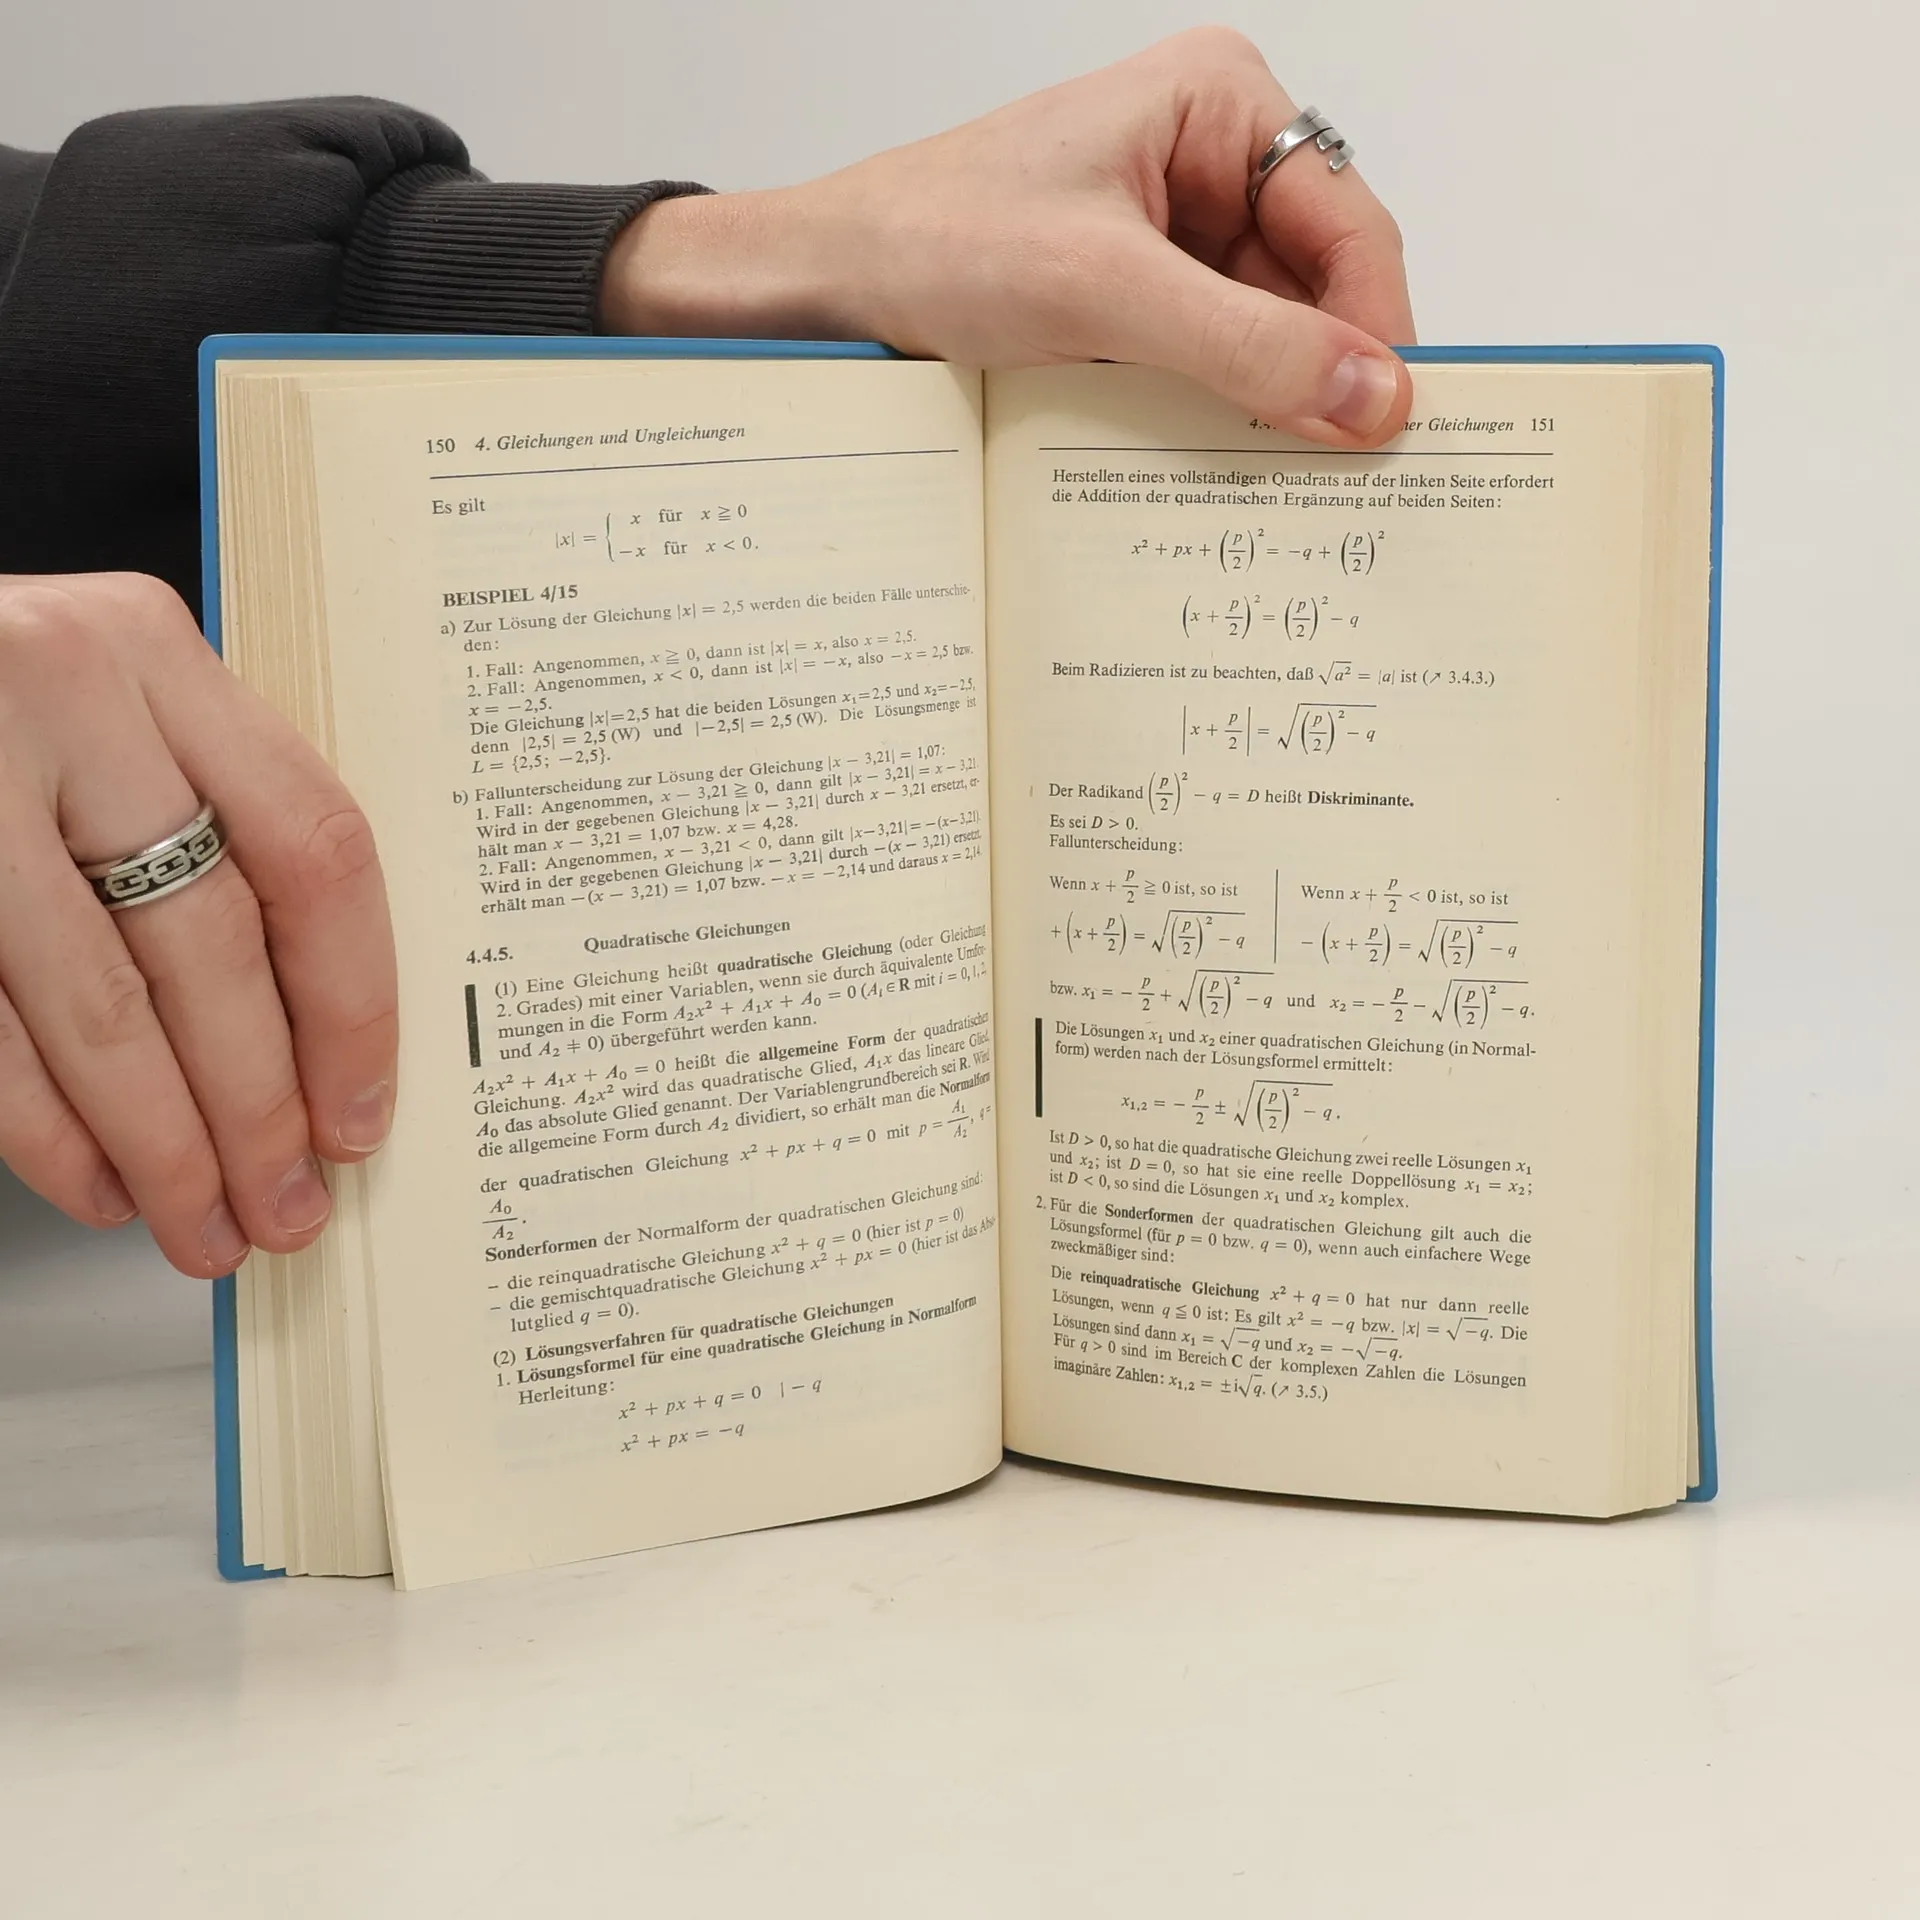 150 4. Gleichungen und Ungleichungen
Es gilt
|x| = { x für x ≧ 0
−x für x < 0.
BEISPIEL 4/15
a) Zur Lösung der Gleichung |x| = 2,5 werden die beiden Fälle unterschie-
den:
1. Fall: Angenommen, x ≧ 0, dann ist |x| = x, also x = 2,5.
2. Fall: Angenommen, x < 0, dann ist |x| = −x, also −x = 2,5 bzw.
x = −2,5.
Die Gleichung |x|=2,5 hat die beiden Lösungen x₁=2,5 und x₂=−2,5,
denn |2,5| = 2,5 (W) und |−2,5| = 2,5 (W). Die Lösungsmenge ist
L = {2,5; −2,5}.
b) Fallunterscheidung zur Lösung der Gleichung |x − 3,21| = 1,07:
1. Fall: Angenommen, x − 3,21 ≧ 0, dann gilt |x − 3,21| = x − 3,21.
Wird in der gegebenen Gleichung |x − 3,21| durch x − 3,21 ersetzt, er-
hält man x − 3,21 = 1,07 bzw. x = 4,28.
2. Fall: Angenommen, x − 3,21 < 0, dann gilt |x−3,21|=−(x−3,21).
Wird in der gegebenen Gleichung |x − 3,21| durch −(x − 3,21) ersetzt,
erhält man −(x − 3,21) = 1,07 bzw. −x = −2,14 und daraus x = 2,14.
4.4.5. Quadratische Gleichungen
(1) Eine Gleichung heißt quadratische Gleichung (oder Gleichung
2. Grades) mit einer Variablen, wenn sie durch äquivalente Umfor-
mungen in die Form A₂x² + A₁x + A₀ = 0 (Aᵢ ∈ R mit i = 0, 1, 2
und A₂ ≠ 0) übergeführt werden kann.
A₂x² + A₁x + A₀ = 0 heißt die allgemeine Form der quadratischen
Gleichung. A₂x² wird das quadratische Glied, A₁x das lineare Glied,
A₀ das absolute Glied genannt. Der Variablengrundbereich sei R. Wird
die allgemeine Form durch A₂ dividiert, so erhält man die Normalform
der quadratischen Gleichung x² + px + q = 0 mit p = A₁/A₂, q =
A₀/A₂.
Sonderformen der Normalform der quadratischen Gleichung sind:
– die reinquadratische Gleichung x² + q = 0 (hier ist p = 0)
– die gemischtquadratische Gleichung x² + px = 0 (hier ist das Abso-
lutglied q = 0).
(2) Lösungsverfahren für quadratische Gleichungen
1. Lösungsformel für eine quadratische Gleichung in Normalform
Herleitung:
x² + px + q = 0 | − q
x² + px = −q
Gleichungen 151
Herstellen eines vollständigen Quadrats auf der linken Seite erfordert
die Addition der quadratischen Ergänzung auf beiden Seiten:
x² + px + (p/2)² = −q + (p/2)²
(x + p/2)² = (p/2)² − q
Beim Radizieren ist zu beachten, daß √a² = |a| ist (↗ 3.4.3.)
|x + p/2| = √((p/2)² − q)
Der Radikand (p/2)² − q = D heißt Diskriminante.
Es sei D > 0.
Fallunterscheidung:
Wenn x + p/2 ≧ 0 ist, so ist | Wenn x + p/2 < 0 ist, so ist
+(x + p/2) = √((p/2)² − q) | −(x + p/2) = √((p/2)² − q)
bzw. x₁ = −p/2 + √((p/2)² − q) und x₂ = −p/2 − √((p/2)² − q).
Die Lösungen x₁ und x₂ einer quadratischen Gleichung (in Normal-
form) werden nach der Lösungsformel ermittelt:
x₁,₂ = −p/2 ± √((p/2)² − q).
Ist D > 0, so hat die quadratische Gleichung zwei reelle Lösungen x₁
und x₂; ist D = 0, so hat sie eine reelle Doppellösung x₁ = x₂;
ist D < 0, so sind die Lösungen x₁ und x₂ komplex.
2. Für die Sonderformen der quadratischen Gleichung gilt auch die
Lösungsformel (für p = 0 bzw. q = 0), wenn auch einfachere Wege
zweckmäßiger sind:
Die reinquadratische Gleichung x² + q = 0 hat nur dann reelle
Lösungen, wenn q ≦ 0 ist: Es gilt x² = −q bzw. |x| = √−q. Die
Lösungen sind dann x₁ = √−q und x₂ = −√−q.
Für q > 0 sind im Bereich C der komplexen Zahlen die Lösungen
imaginäre Zahlen: x₁,₂ = ±i√q. (↗ 3.5.)